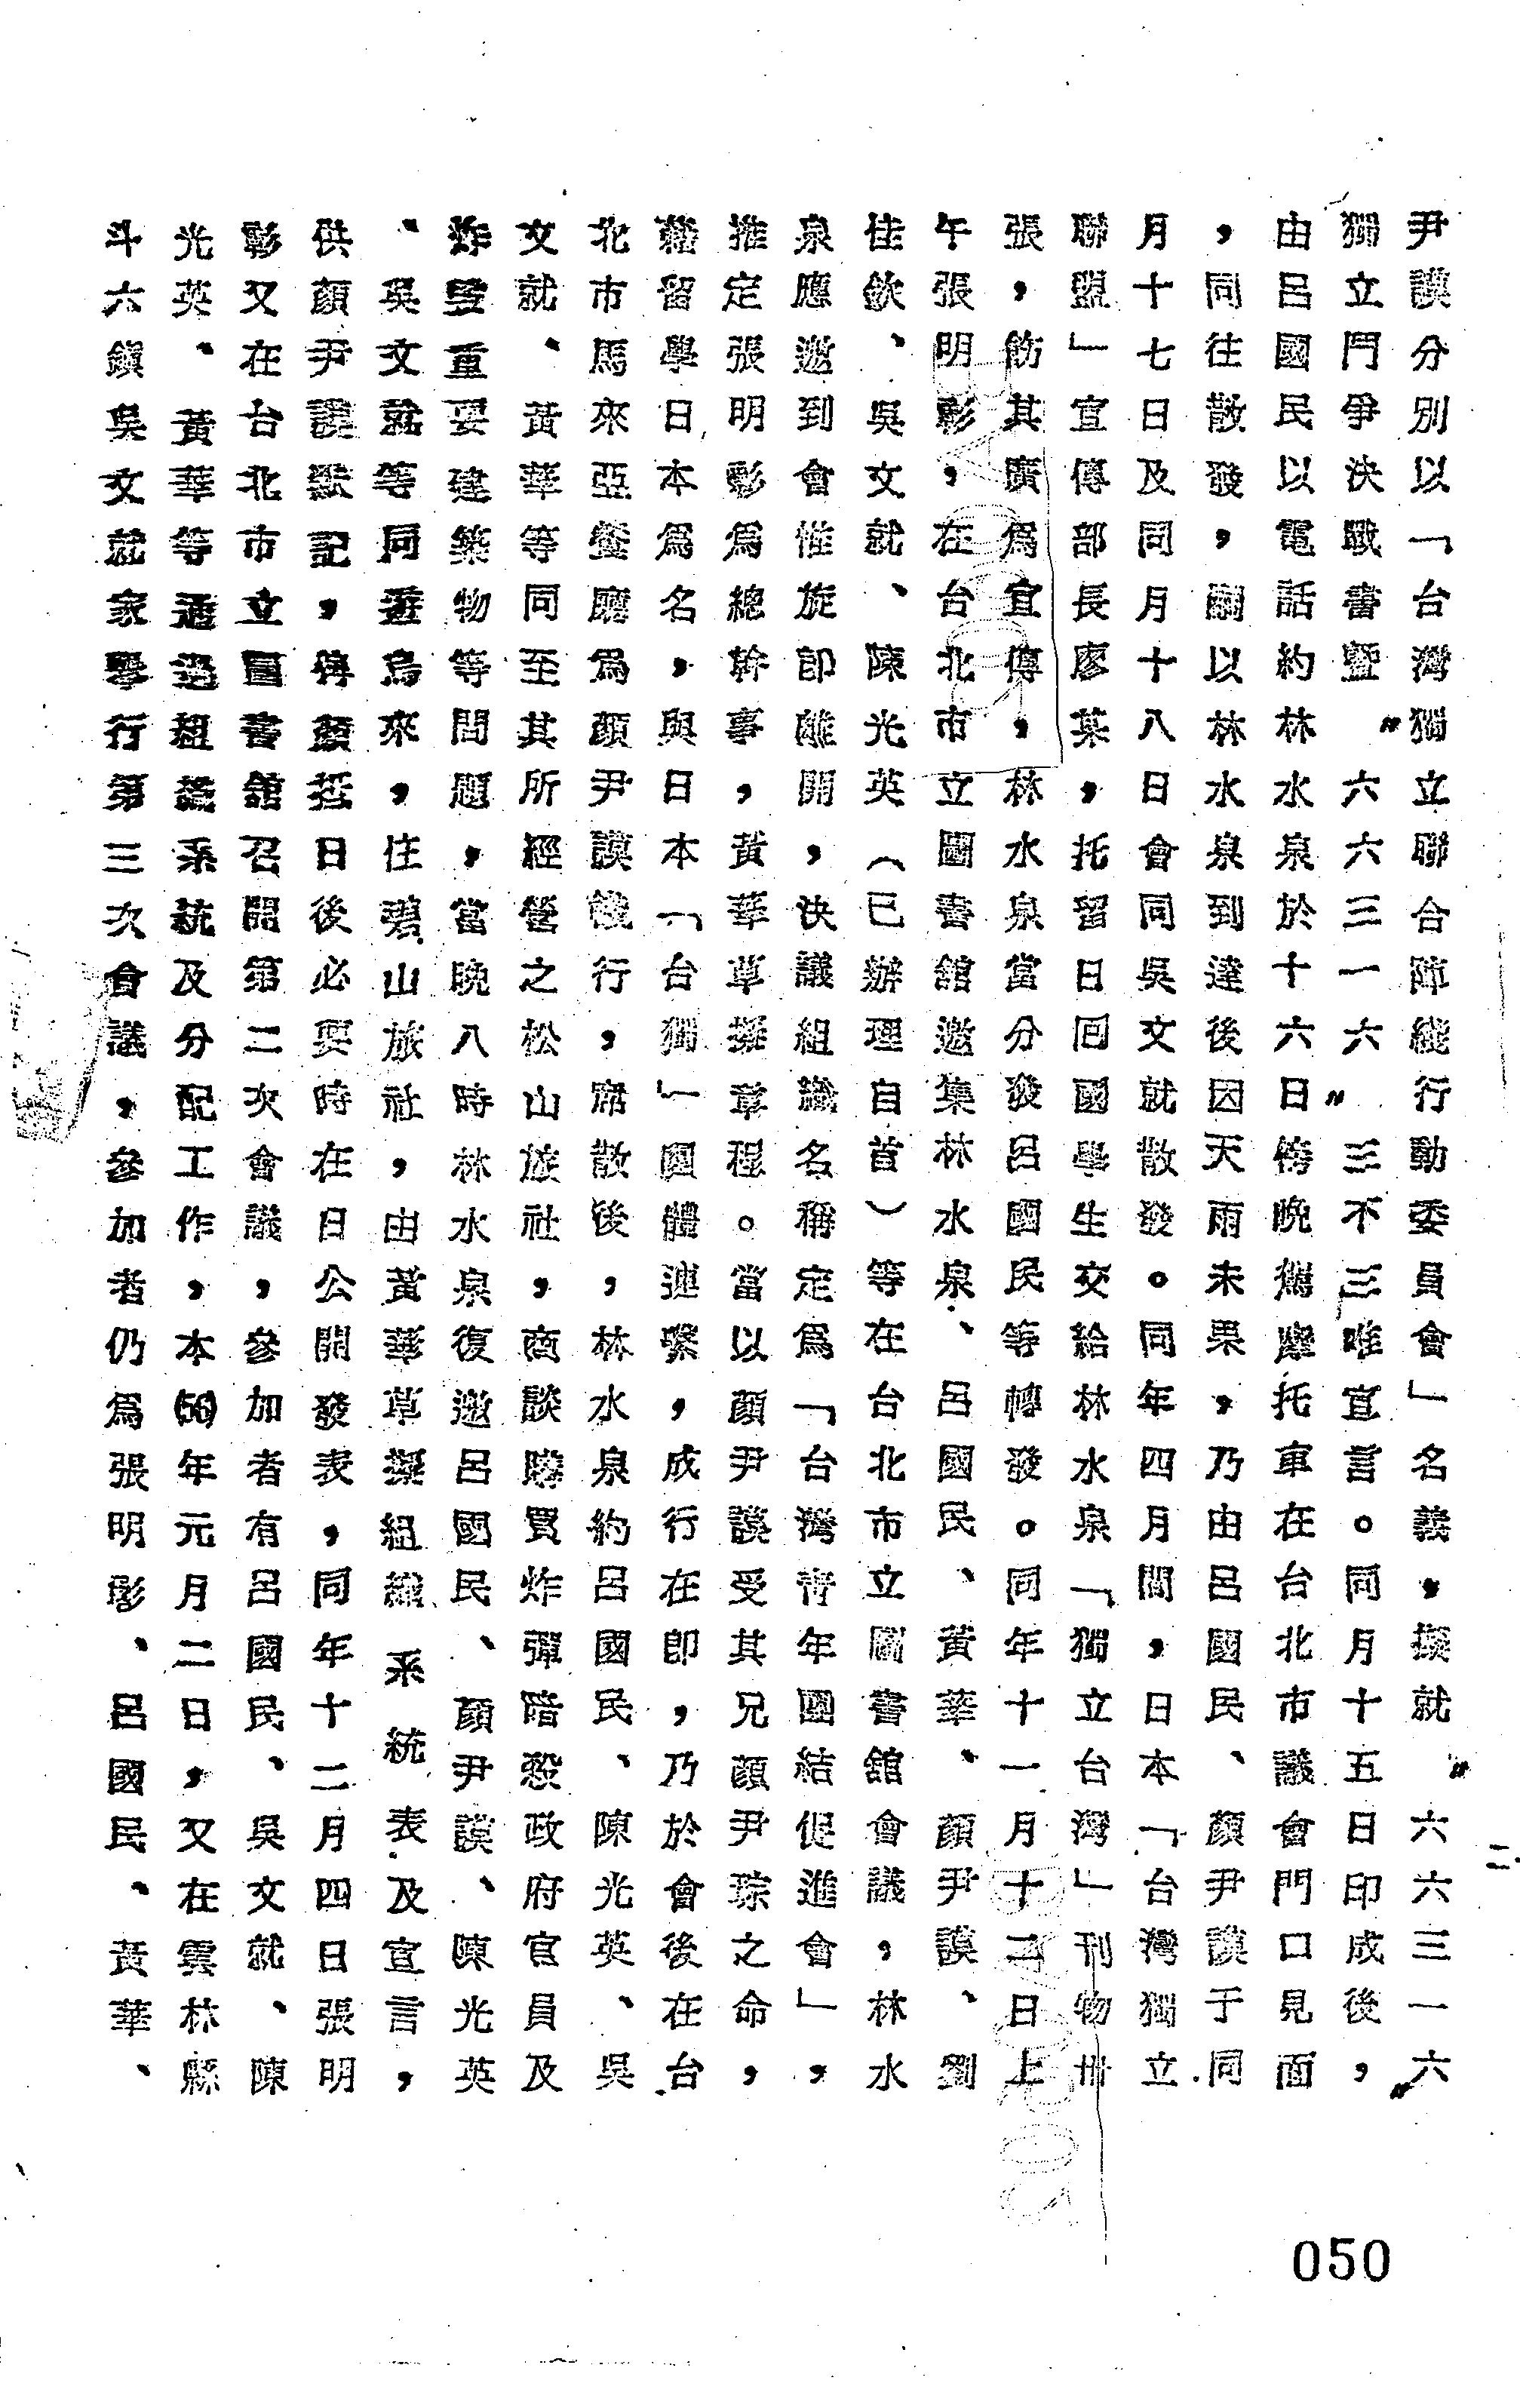 尹謨分別以「台灣獨立聯合陣綫行動委員會」名義，擬就〃六六三一六〃
獨立鬥爭決戰書暨〃六六三一六〃三不三唯宣言。同月十五日印成後，
由呂國民以電話約林水泉於十六日傍晚駕塵托車在台北市議會門口見面
，同往散發，嗣以林水泉到達後因天雨未果，乃由呂國民、顏尹謨于同
月十七日及同月十八日會同吳文就散發。同年四月間，日本「台灣獨立
聯盟」宣傳部長廖某，托留日回國學生交給林水泉「獨立台灣」刊物卅
張，飭其廣為宣傳，林水泉當分發呂國民等轉發。同年十一月十二日上
午張明彰，在台北市立圖書舘邀集林水泉、呂國民、黃華、顏尹謨、劉
佳欽、吳文就、陳光英（已辦理自首）等在台北市立圖書舘會議，林水
泉應邀到會惟旋即離開，決議組識名稱定為「台灣青年團結促進會」，
推定張明彰為總幹事，黃華草擬章程。當以顏尹謨受其兄顏尹琮之命，
藉留學日本為名，與日本「台獨」團體連繫，成行在即，乃於會後在台
北市馬來亞餐廳為顏尹謨餞行，席散後，林水泉約呂國民、陳光英、吳
文就、黃華等同至其所經營之松山旅社，商談購買炸彈暗殺政府官員及
炸毀重要建築物等問題，當晚八時林水泉復邀呂國民、顏尹謨、陳光英
、吳文就等同遊烏來，住碧山旅社，由黃華草擬組織系統表及宣言，
供顏尹謨默記，俾顏抵日後必要時在日公開發表，同年十二月四日張明
彰又在台北市立圖書舘召開第二次會議，參加者有呂國民、吳文就、陳
光英、黃華等通過組織系統及分配工作，本(56)年元月二日，又在雲林縣
斗六鎮吳文就家舉行第三次會議，參加者仍為張明彰、呂國民、黃華、
二
050